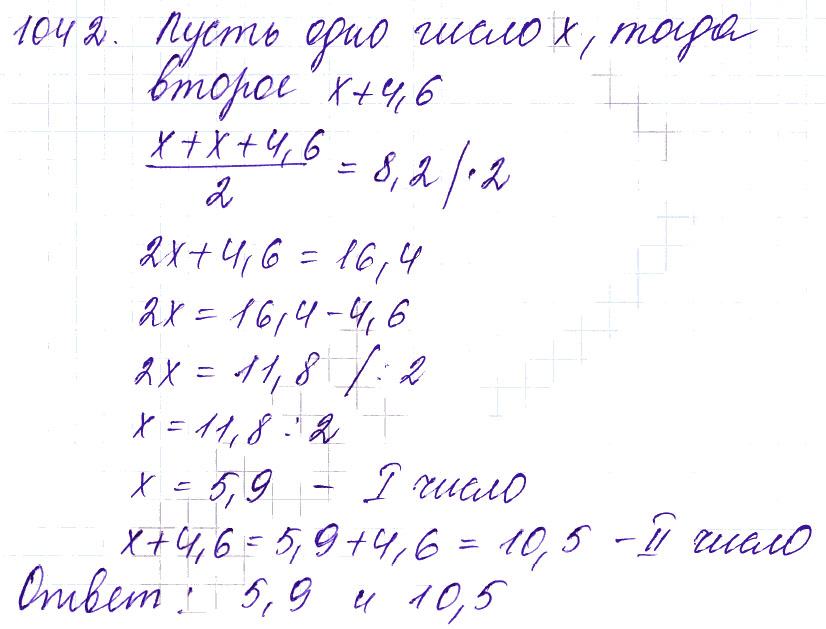 1042. Пусть одно число x, тогда
второе x+4,6
x+x+4,6
2
= 8,2 /·2
2x+4,6 = 16,4
2x = 16,4-4,6
2x = 11,8 /: 2
x = 11,8 : 2
x = 5,9 - I число
x+4,6=5,9+4,6 = 10,5 - II число
Ответ: 5,9 и 10,5